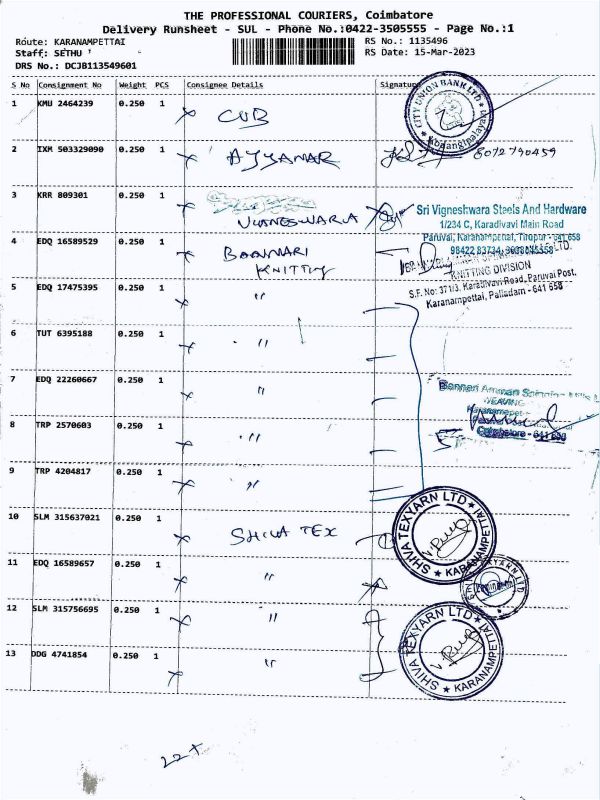 THE PROFESSIONAL COURIERS, Coimbatore
Delivery Runsheet - SUL - Phone No.:0422-3505555 - Page No.:1
Route: KARANAMPETTAI RS No.: 1135496
Staff: SETHU RS Date: 15-Mar-2023
DRS No.: DCJB113549601
S No Consignment No Weight PCS Consignee Details Signature
1 KMU 2464239 0.250 1 CUB CITY UNION BANK LTD
2 IXM 503329090 0.250 1 AYYANAR 8072790459
3 KRR 809301 0.250 1
Sri Vigneshwara Steels And Hardware
1/234 C, Karadivavi Main Road
Paruvai, Karanampettai, Tirupur - 641 658
4 EDQ 16589529 0.250 1 BANNARI
KNITTING DIVISION
S.F. No: 371/3, Karadivavi Road, Paruvai Post,
Karanampettai, Palladam - 641 658
5 EDQ 17475395 0.250 1 "
6 TUT 6395188 0.250 1 "
7 EDQ 22260667 0.250 1 "
WEAVING
8 TRP 2570603 0.250 1 "
Coimbatore - 641 658
9 TRP 4204817 0.250 1 "
10 SLM 315637021 0.250 1 SHIVA TEX SHIVA TEXYARN LTD KARANAMPETTAI
11 EDQ 16589657 0.250 1 "
12 SLM 315756695 0.250 1 "
13 DDG 4741854 0.250 1 " SHIVA TEXYARN LTD KARANAMPETTAI